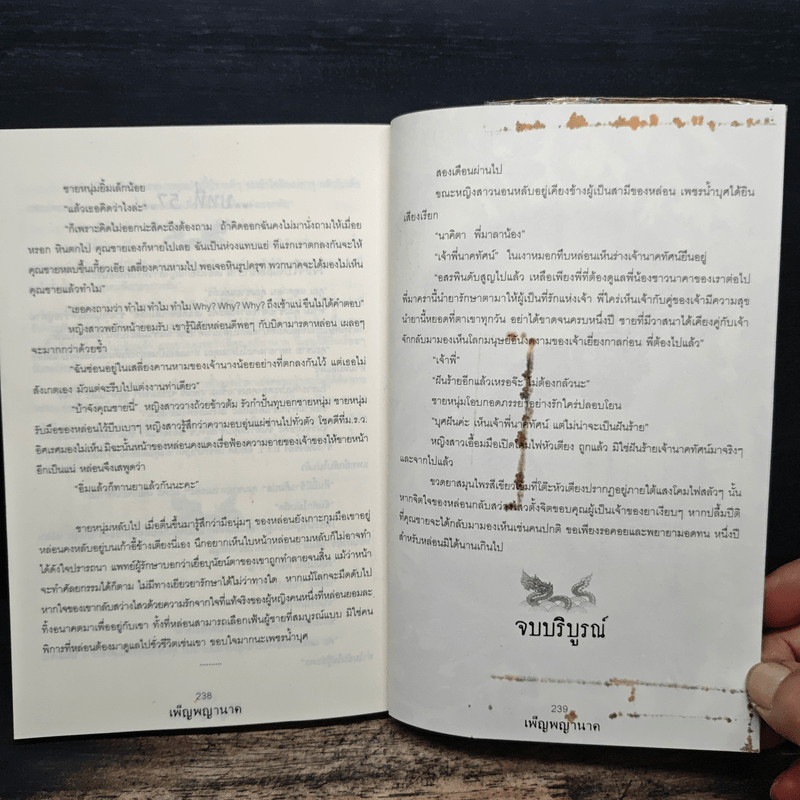 ชายหนุ่มยิ้มเล็กน้อย
"แล้วเธอคิดว่าไงล่ะ"
"ก็เพราะคิดไม่ออกน่ะสิคะถึงต้องถาม ถ้าคิดออกฉันคงไม่มานั่งถามให้เมื่อย
หรอก หินตกไป คุณชายเองก็หายไปเลย ฉันเป็นห่วงแทบแย่ ที่แรกเราตกลงกันจะให้
คุณชายหลบขึ้นเกี้ยวเอ๊ย เสลี่ยงคานหามไป พอเจอหินรูปครุฑ พวกนาคจะได้มองไม่เห็น
คุณชายแล้วทำไม"
"เธอคงถามว่า ทำไม ทำไม ทำไม Why? Why? Why? ถึงเช้าแน่ ขืนไม่ได้คำตอบ"
หญิงสาวพยักหน้ายอมรับ เขารู้นิสัยหล่อนดีพอๆ กับบิดามารดาหล่อน เผลอๆ
จะมากกว่าด้วยซ้ำ
"ฉันซ่อนอยู่ในเสลี่ยงคานหามของเจ้านางน้อยอย่างที่ตกลงกันไว้ แต่เธอไม่
สังเกตเอง มัวแต่จะรีบไปแต่งงานท่าเดียว"
"บ้าจังคุณชายนี่" หญิงสาววางถ้วยข้าวต้ม รัวกำปั้นทุบอกชายหนุ่ม ชายหนุ่ม
รับมือของหล่อนไว้บีบเบาๆ หญิงสาวรู้สึกว่าความอบอุ่นแผ่ซ่านไปทั่วตัว โชคดีที่ม.ร.ว.
อิศเรศมองไม่เห็น มิฉะนั้นหน้าของหล่อนคงแดงเรื่อฟ้องความอายของเจ้าของให้ขายหน้า
อีกเป็นแน่ หล่อนจึงเสพูดว่า
"อิ่มแล้วก็ทานยาแล้วกันนะคะ"
ชายหนุ่มหลับไป เมื่อตื่นขึ้นมารู้สึกว่ามือนุ่มๆ ของหล่อนยังเกาะกุมมือเขาอยู่
หล่อนคงหลับอยู่บนเก้าอี้ข้างเตียงนี่เอง นึกอยากเห็นใบหน้าหล่อนยามหลับก็ไม่อาจทำ
ได้ดังใจปรารถนา แพทย์ผู้รักษาบอกว่าเยื่อบุนัยน์ตาของเขาถูกทำลายจนสิ้น แม้ว่าหน้า
จะทำศัลยกรรมได้ก็ตาม ไม่มีทางเยียวยารักษาได้ไม่ว่าทางใด หากแม้โลกจะมืดดับไป
หากใจของเขากลับสว่างไสวด้วยความรักจากใจที่แท้จริงของผู้หญิงคนหนึ่งที่หล่อนยอมละ
ทิ้งอนาคตมาเพื่ออยู่กับเขา ทั้งที่หล่อนสามารถเลือกเฟ้นผู้ชายที่สมบูรณ์แบบ มิใช่คน
พิการที่หล่อนต้องมาดูแลไปชั่วชีวิตเช่นเขา ขอบใจมากนะเพชรน้ำบุศ
..........
238
เพ็ญพญานาค
สองเดือนผ่านไป
ขณะหญิงสาวนอนหลับอยู่เคียงข้างผู้เป็นสามีของหล่อน เพชรน้ำบุศได้ยิน
เสียงเรียก
"นาคิตา พี่มาลาน้อง"
"เจ้าพี่นาคทัศน์" ในเงาหมอกทึบหล่อนเห็นร่างเจ้านาคทัศน์ยืนอยู่
"อสรพินดับสูญไปแล้ว เหลือเพียงพี่ที่ต้องดูแลพี่น้องชาวนาคาของเราต่อไป
พี่มาครานี้นำยารักษาตามาให้ผู้เป็นที่รักแห่งเจ้า พี่ใคร่เห็นเจ้ากับคู่ของเจ้ามีความสุข
นำยานี้หยอดที่ตาเขาทุกวัน อย่าได้ขาดจนครบหนึ่งปี ชายที่มีวาสนาได้เคียงคู่กับเจ้า
จักกลับมามองเห็นโลกมนุษย์อันงดงามของเจ้าเยี่ยงกาลก่อน พี่ต้องไปแล้ว"
"เจ้าพี่"
"ฝันร้ายอีกแล้วเหรอจ๊ะ ไม่ต้องกลัวนะ"
ชายหนุ่มโอบกอดภรรยาอย่างรักใคร่ปลอบโยน
"บุศฝันค่ะ เห็นเจ้าพี่นาคทัศน์ แต่ไม่น่าจะเป็นฝันร้าย"
หญิงสาวเอื้อมมือเปิดโคมไฟหัวเตียง ถูกแล้ว มิใช่ฝันร้ายเจ้านาคทัศน์มาจริงๆ
และจากไปแล้ว
ขวดยาสมุนไพรสีเขียวใสที่โต๊ะหัวเตียงปรากฏอยู่ภายใต้แสงโคมไฟสลัวๆ นั้น
หากจิตใจของหล่อนกลับสว่างไสวตั้งจิตขอบคุณผู้เป็นเจ้าของยาเงียบๆ หากปลื้มปีติ
ที่คุณชายจะได้กลับมามองเห็นเช่นคนปกติ ขอเพียงรอคอยและพยายามอดทน หนึ่งปี
สำหรับหล่อนมิได้นานเกินไป
จบบริบูรณ์
239
เพ็ญพญานาค